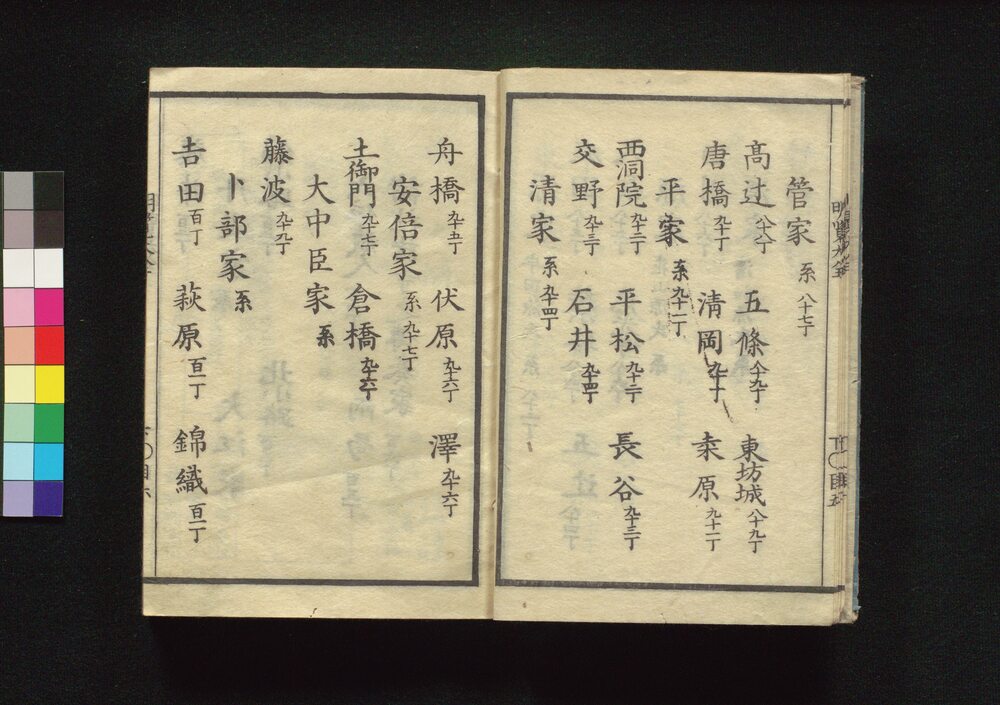 菅家 系 八十七丁
高辻 八十八丁 五條 八十九丁 東坊城 八十九丁
唐橋 九十丁 清岡 九十丁 桒原 九十一丁
平家 系 九十一丁
西洞院 九十二丁 平松 九十二丁 長谷 九十三丁
交野 九十三丁 石井 九十四丁
清家 系 九十四丁
舟橋 九十五丁 伏原 九十六丁 澤 九十六丁
安倍家 系 九十七丁
土御門 九十七丁 倉橋 九十八丁
大中臣家 系
藤波 九十九丁
卜部家 系
𠮷田 百丁 萩原 百一丁 錦織 百一丁